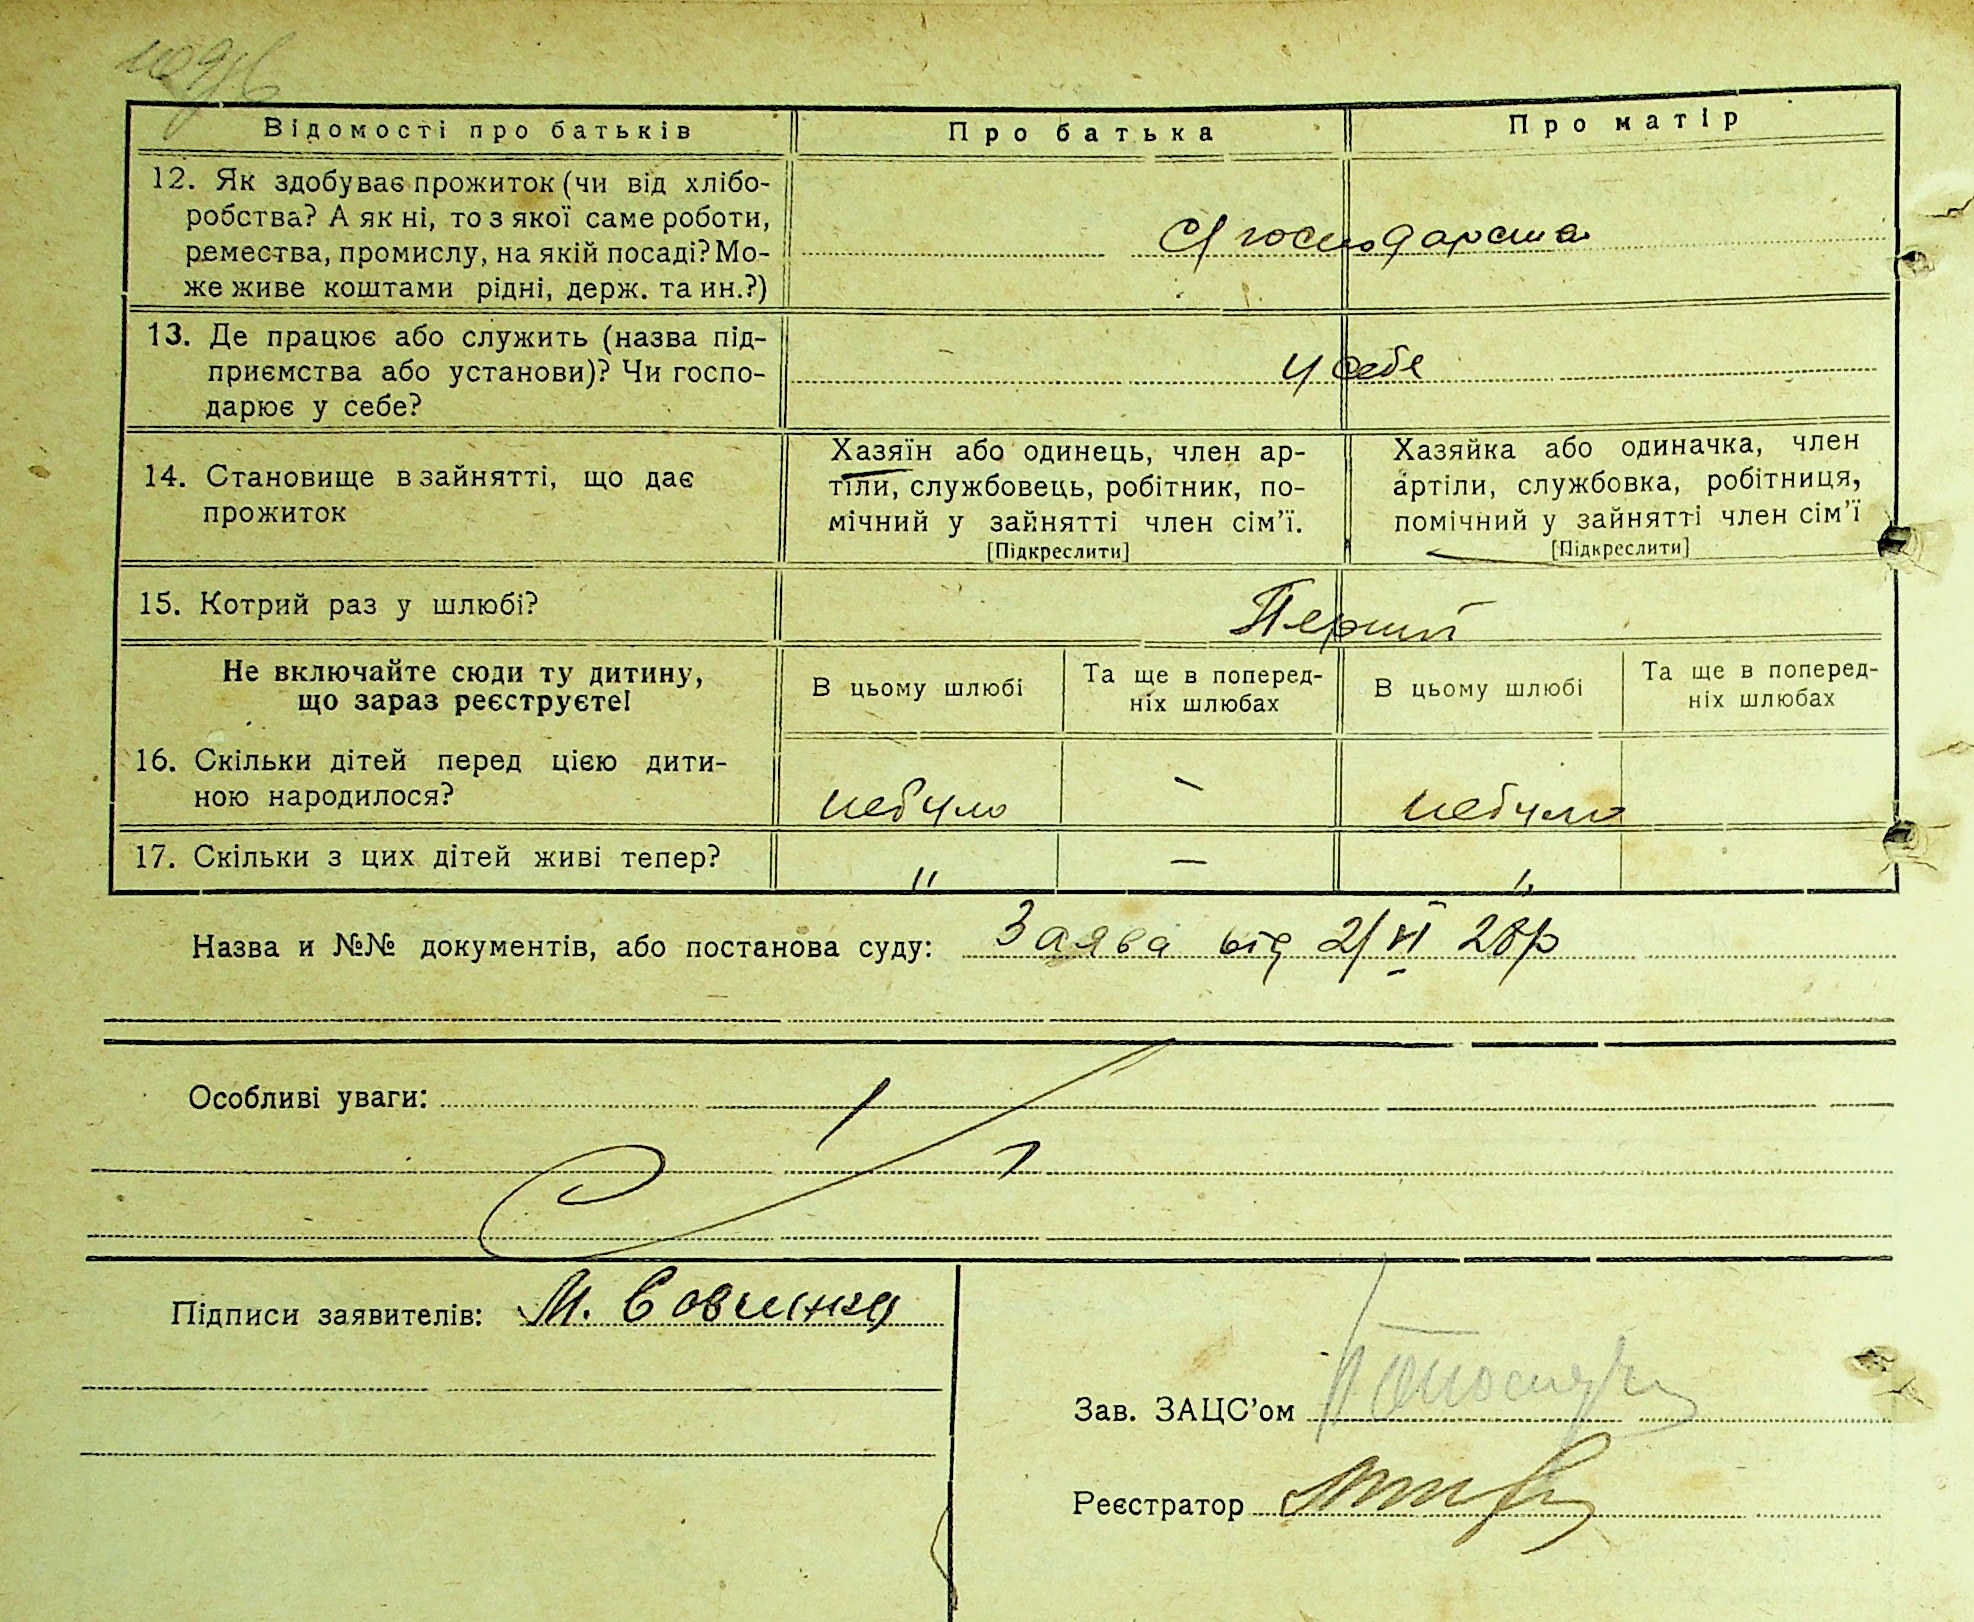 Відомості про батьків
Про батька
Про матір
12. Як здобуває прожиток (чи від хлібо-
робства? А як ні, то з якої саме роботи,
ремества, промислу, на якій посаді? Мо-
же живе коштами рідні, держ. та ин.?)
С/господарства
13. Де працює або служить (назва під-
приємства або установи)? Чи госпо-
дарює у себе?
у себе
14. Становище в зайнятті, що дає
прожиток
Хазяїн або одинець, член ар-
тіли, службовець, робітник, по-
мічний у зайнятті член сім'ї.
[Підкреслити]
Хазяйка або одиначка, член
артіли, службовка, робітниця,
помічний у зайнятті член сім'ї
[Підкреслити]
15. Котрий раз у шлюбі?
Перший
Не включайте сюди ту дитину,
що зараз реєструєте!
В цьому шлюбі
Та ще в поперед-
ніх шлюбах
В цьому шлюбі
Та ще в поперед-
ніх шлюбах
16. Скільки дітей перед цією дити-
ною народилося?
небуло
—
небуло
17. Скільки з цих дітей живі тепер?
"
—
"
Назва и №№ документів, або постанова суду: Заява від 2/VI 28р
Особливі уваги:
Підписи заявителів: М.
Зав. ЗАЦС'ом
Реєстратор